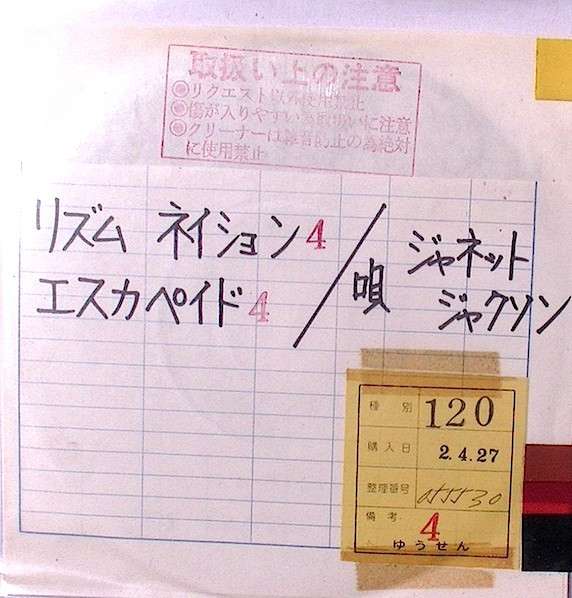 取扱い上の注意
◉リクエスト以外使用禁止
◉傷が入りやすい為取扱いに注意
◉クリーナーは雑音防止の為絶対
に使用禁止
リズム ネイション4
エスカペイド4
／唄
ジャネット
ジャクソン
種別 120
購入日 2.4.27
整理番号
備考 4
ゆうせん